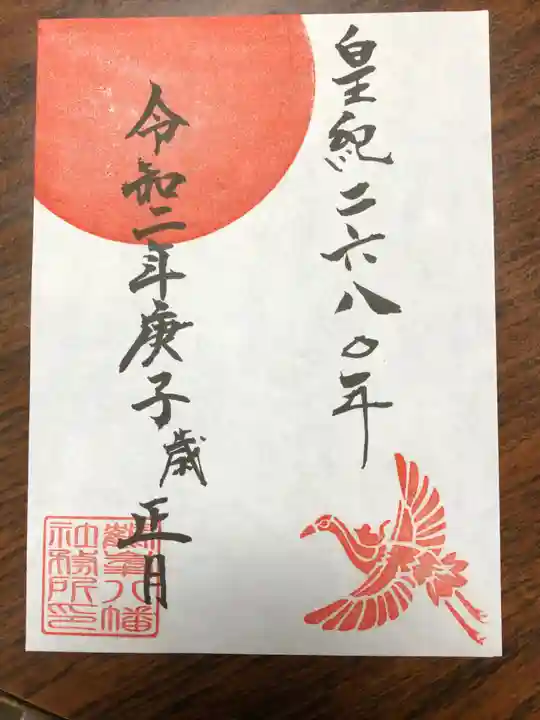 皇紀二六八〇年
令和二年庚子歳 正月
八幡
社務所印